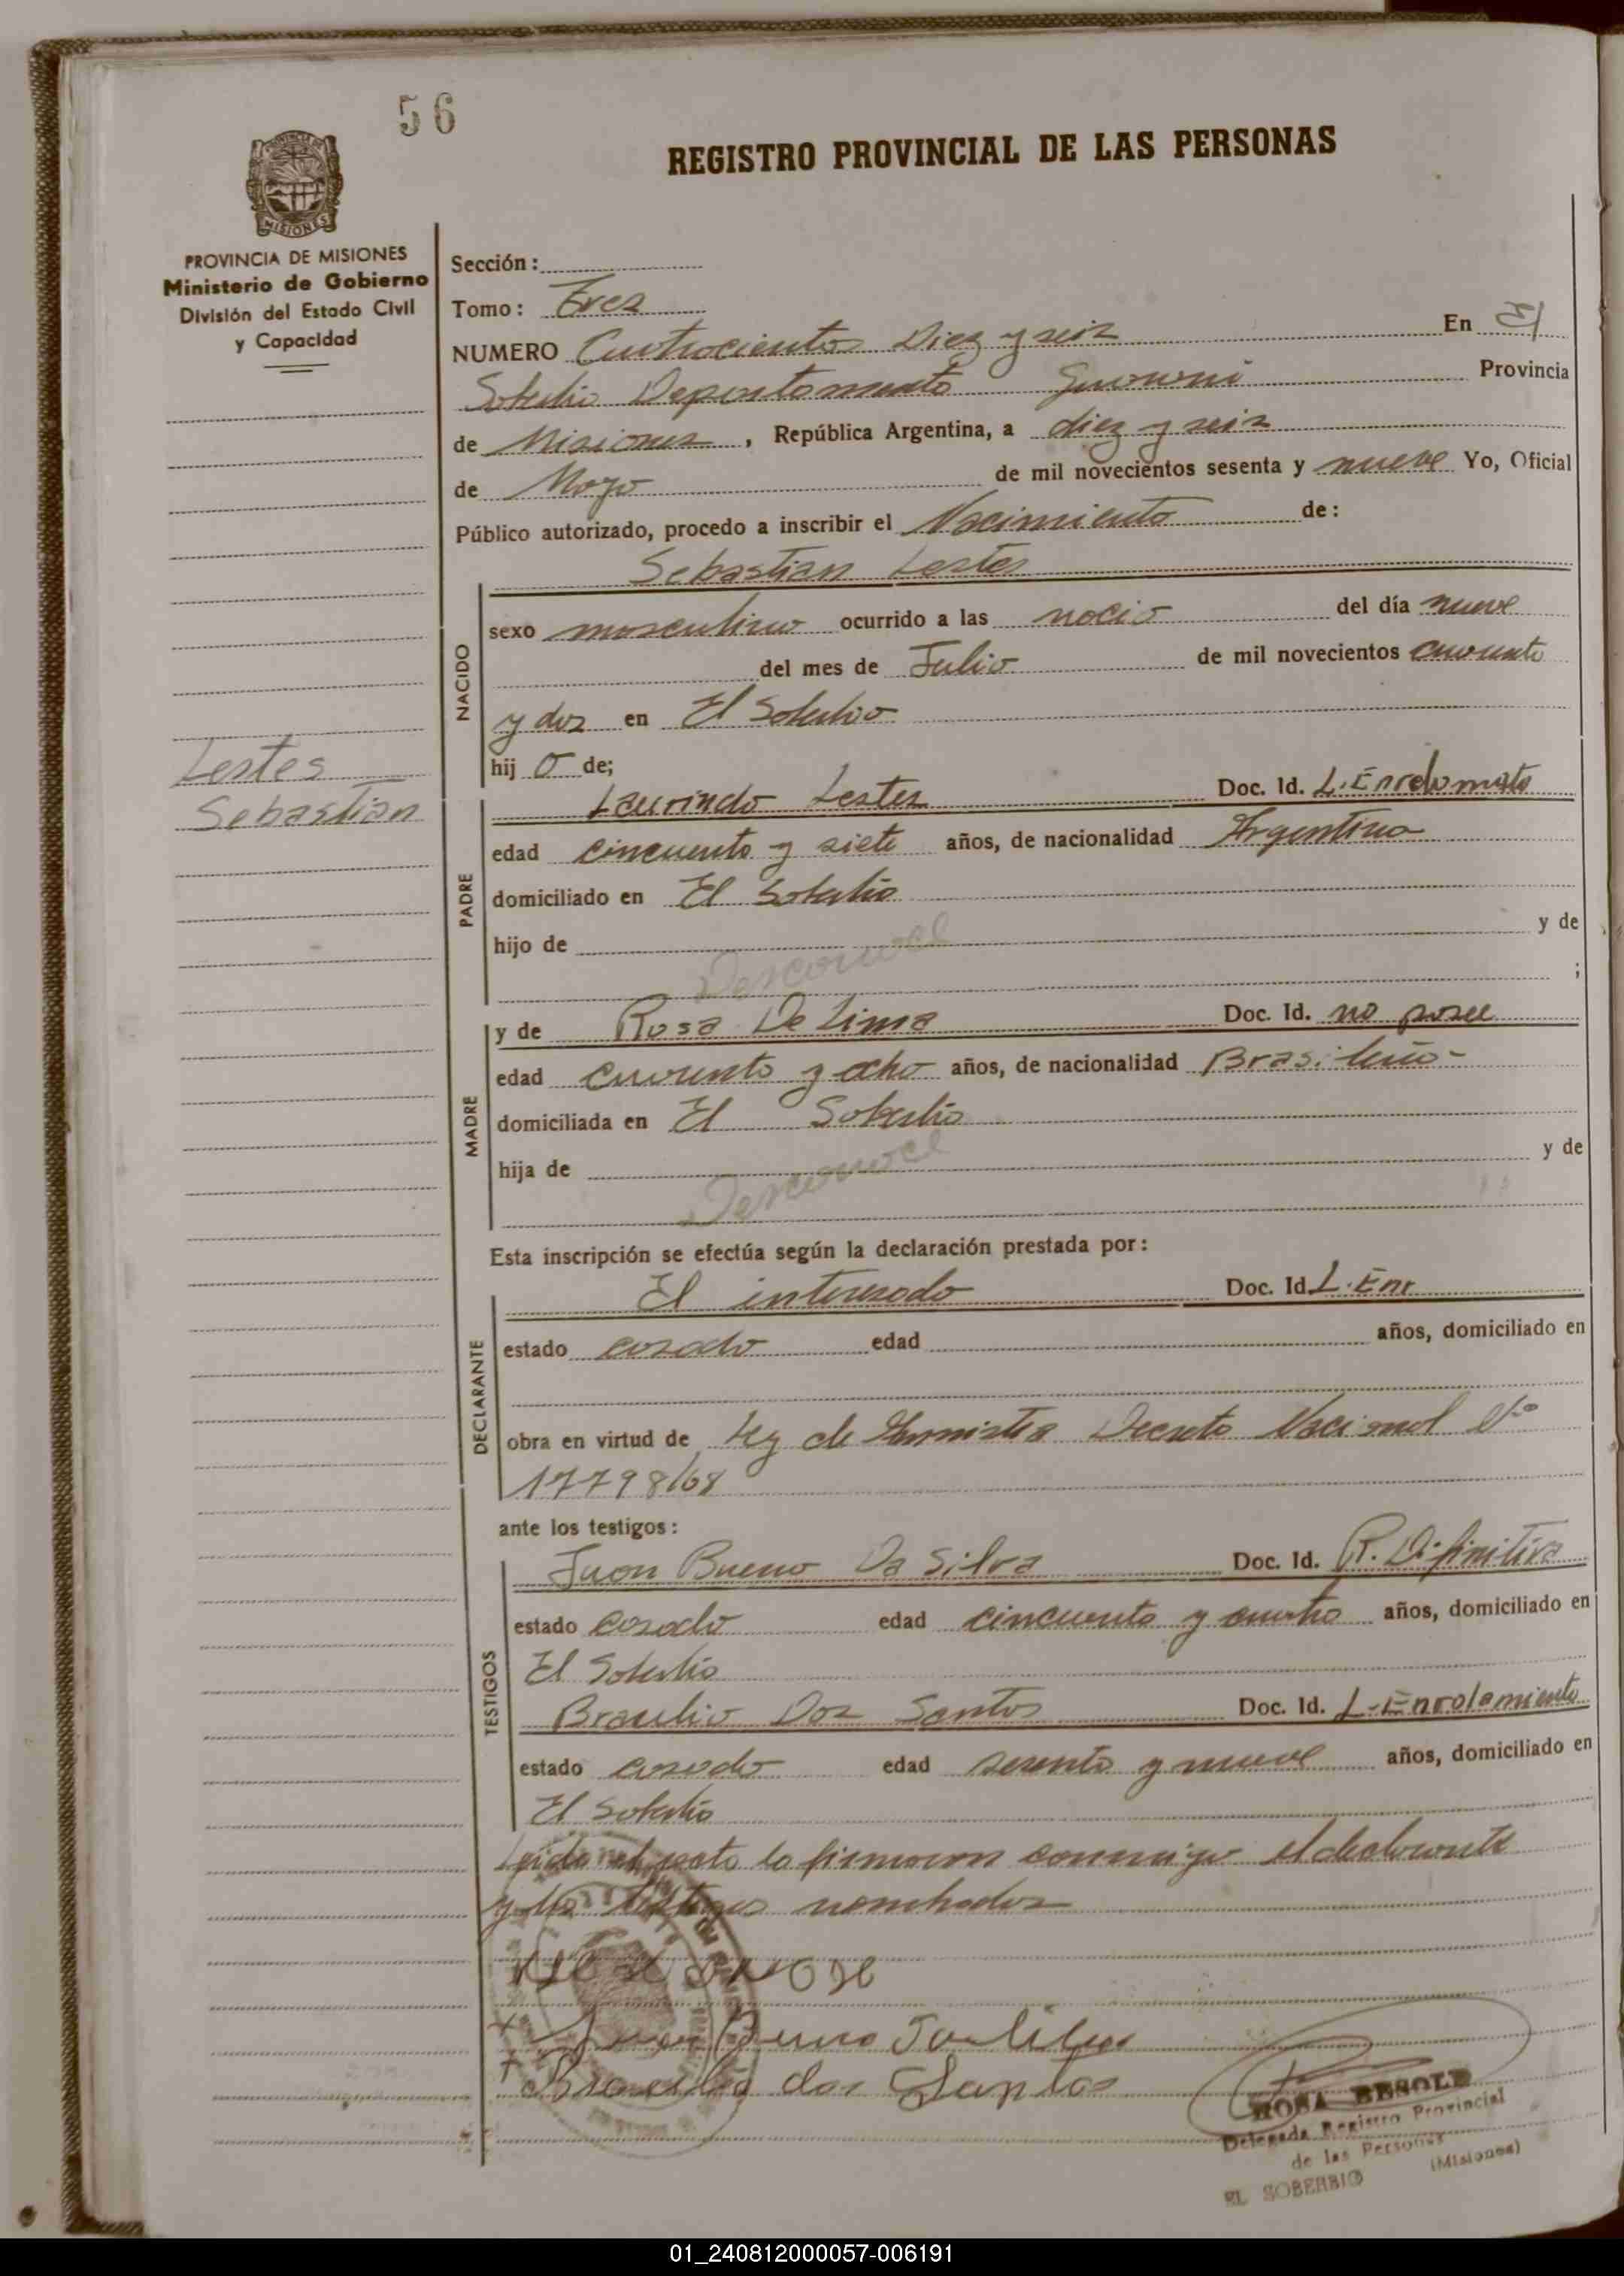 56
REGISTRO PROVINCIAL DE LAS PERSONAS
PROVINCIA DE MISIONES
Ministerio de Gobierno
División del Estado Civil
y Capacidad
Sección:
Tomo: Tres
NUMERO Cuatrocientos Diez y seis En El
Soberbio Departamento Guaraní Provincia
de Misiones, República Argentina, a diez y seis
de Mayo de mil novecientos sesenta y nueve Yo, Oficial
Público autorizado, procedo a inscribir el Nacimiento de:
Sebastian Lestes
NACIDO
sexo masculino ocurrido a las nació del día nueve
del mes de Julio de mil novecientos cuarenta
y dos en El Soberbio
hijo de;
Lestes
Sebastian
PADRE
Laurindo Lestes Doc. Id.
edad cincuenta y siete años, de nacionalidad Argentina
domiciliado en El Soberbio
hijo de y de
Desconoce
;
MADRE
y de Rosa De Lima Doc. Id. no posee
edad cuarenta y ocho años, de nacionalidad Brasileña-
domiciliada en El Soberbio
hija de y de
Desconoce
Esta inscripción se efectúa según la declaración prestada por:
DECLARANTE
El interesado Doc. Id. L. Enr
estado casado edad años, domiciliado en
obra en virtud de Ley de Amnistia Decreto Nacional Nº
17798/68
ante los testigos:
TESTIGOS
Juan Bueno Da Silva Doc. Id. R. Difinitiva
estado casado edad cincuenta y cuatro años, domiciliado en
El Soberbio
Braulio Dos Santos Doc. Id. L-Enrolamiento
estado casado edad sesenta y nueve años, domiciliado en
El Soberbio
Leida el acta la firmaron conmigo el declarante
y los testigos nombrados
x Juan Bueno
x Braulio dos Santos
ROSA BESOLD
Delegada Registro Provincial
de las Personas
EL SOBERBIO (Misiones)
01_240812000057-006191